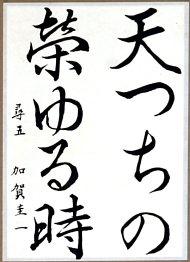 天つちの
榮ゆる時
尋五 加賀圭一